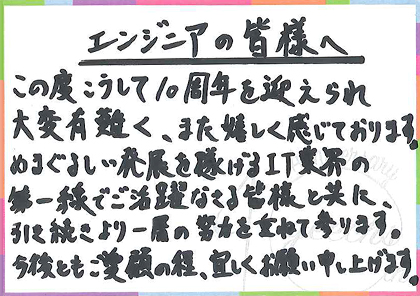 エンジニアの皆様へ
この度こうして10周年を迎えられ
大変有難く、また嬉しく感じております。
めまぐるしい発展を遂げるIT業界の
第一線でご活躍なさる皆様と共に、
引き続きより一層の努力を重ねて参ります。
今後ともご愛顧の程、宜しくお願い申し上げます。